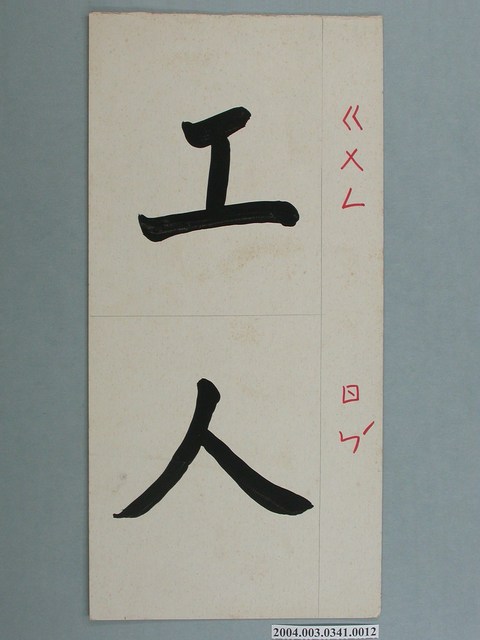 工人
ㄍㄨㄥ
ㄖㄣˊ
2004.003.0341.0012